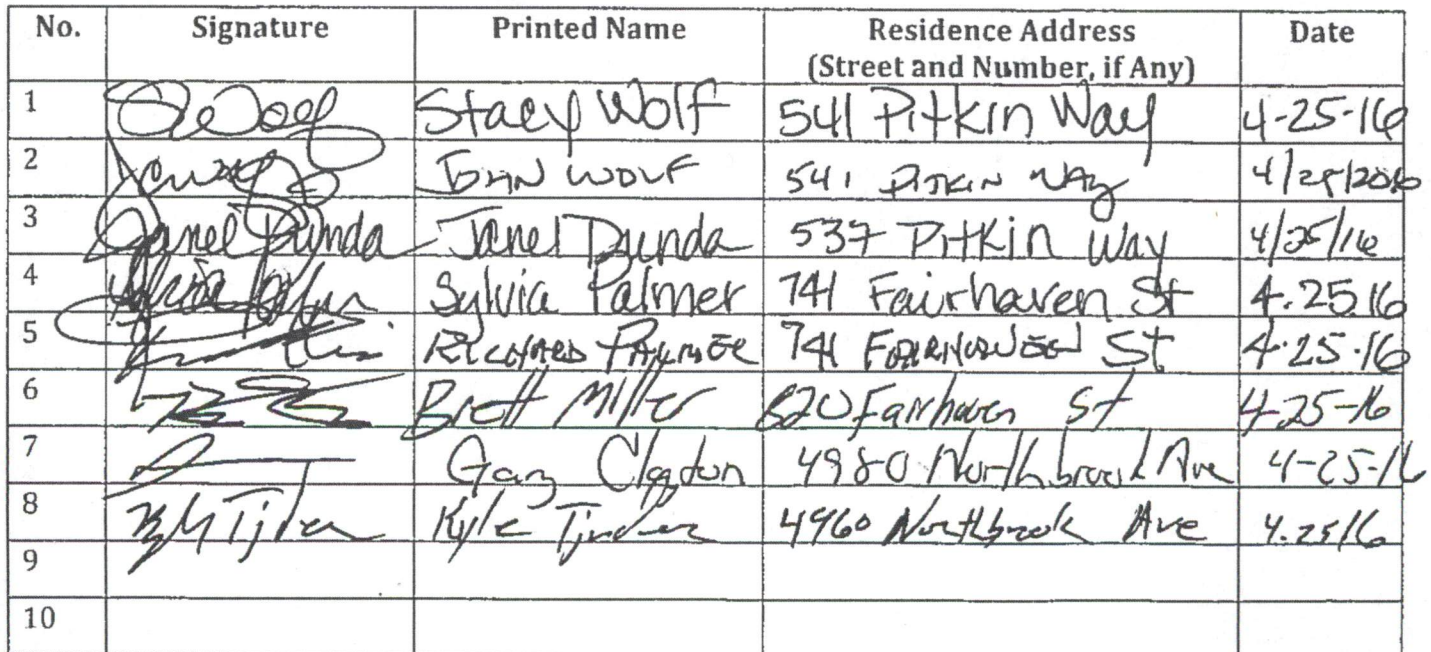 No. Signature Printed Name Residence Address Date
(Street and Number, if Any)
1 Stacy Wolf 541 Pitkin Way 4-25-16
2 JOHN WOLF 541 PITKIN WAY 4/25/2016
3 Janel Dunda Janel Dunda 537 Pitkin Way 4/25/16
4 Sylvia Palmer 741 Fairhaven St 4.25.16
5 RICHARD PALMER 741 FAIRHAVEN St 4.25.16
6 Brett Miller 820 Fairhaven St 4-25-16
7 Gary 4980 Northbrook Ave 4-25-16
8 Kyle 4960 Northbrook Ave 4.25.16
9
10